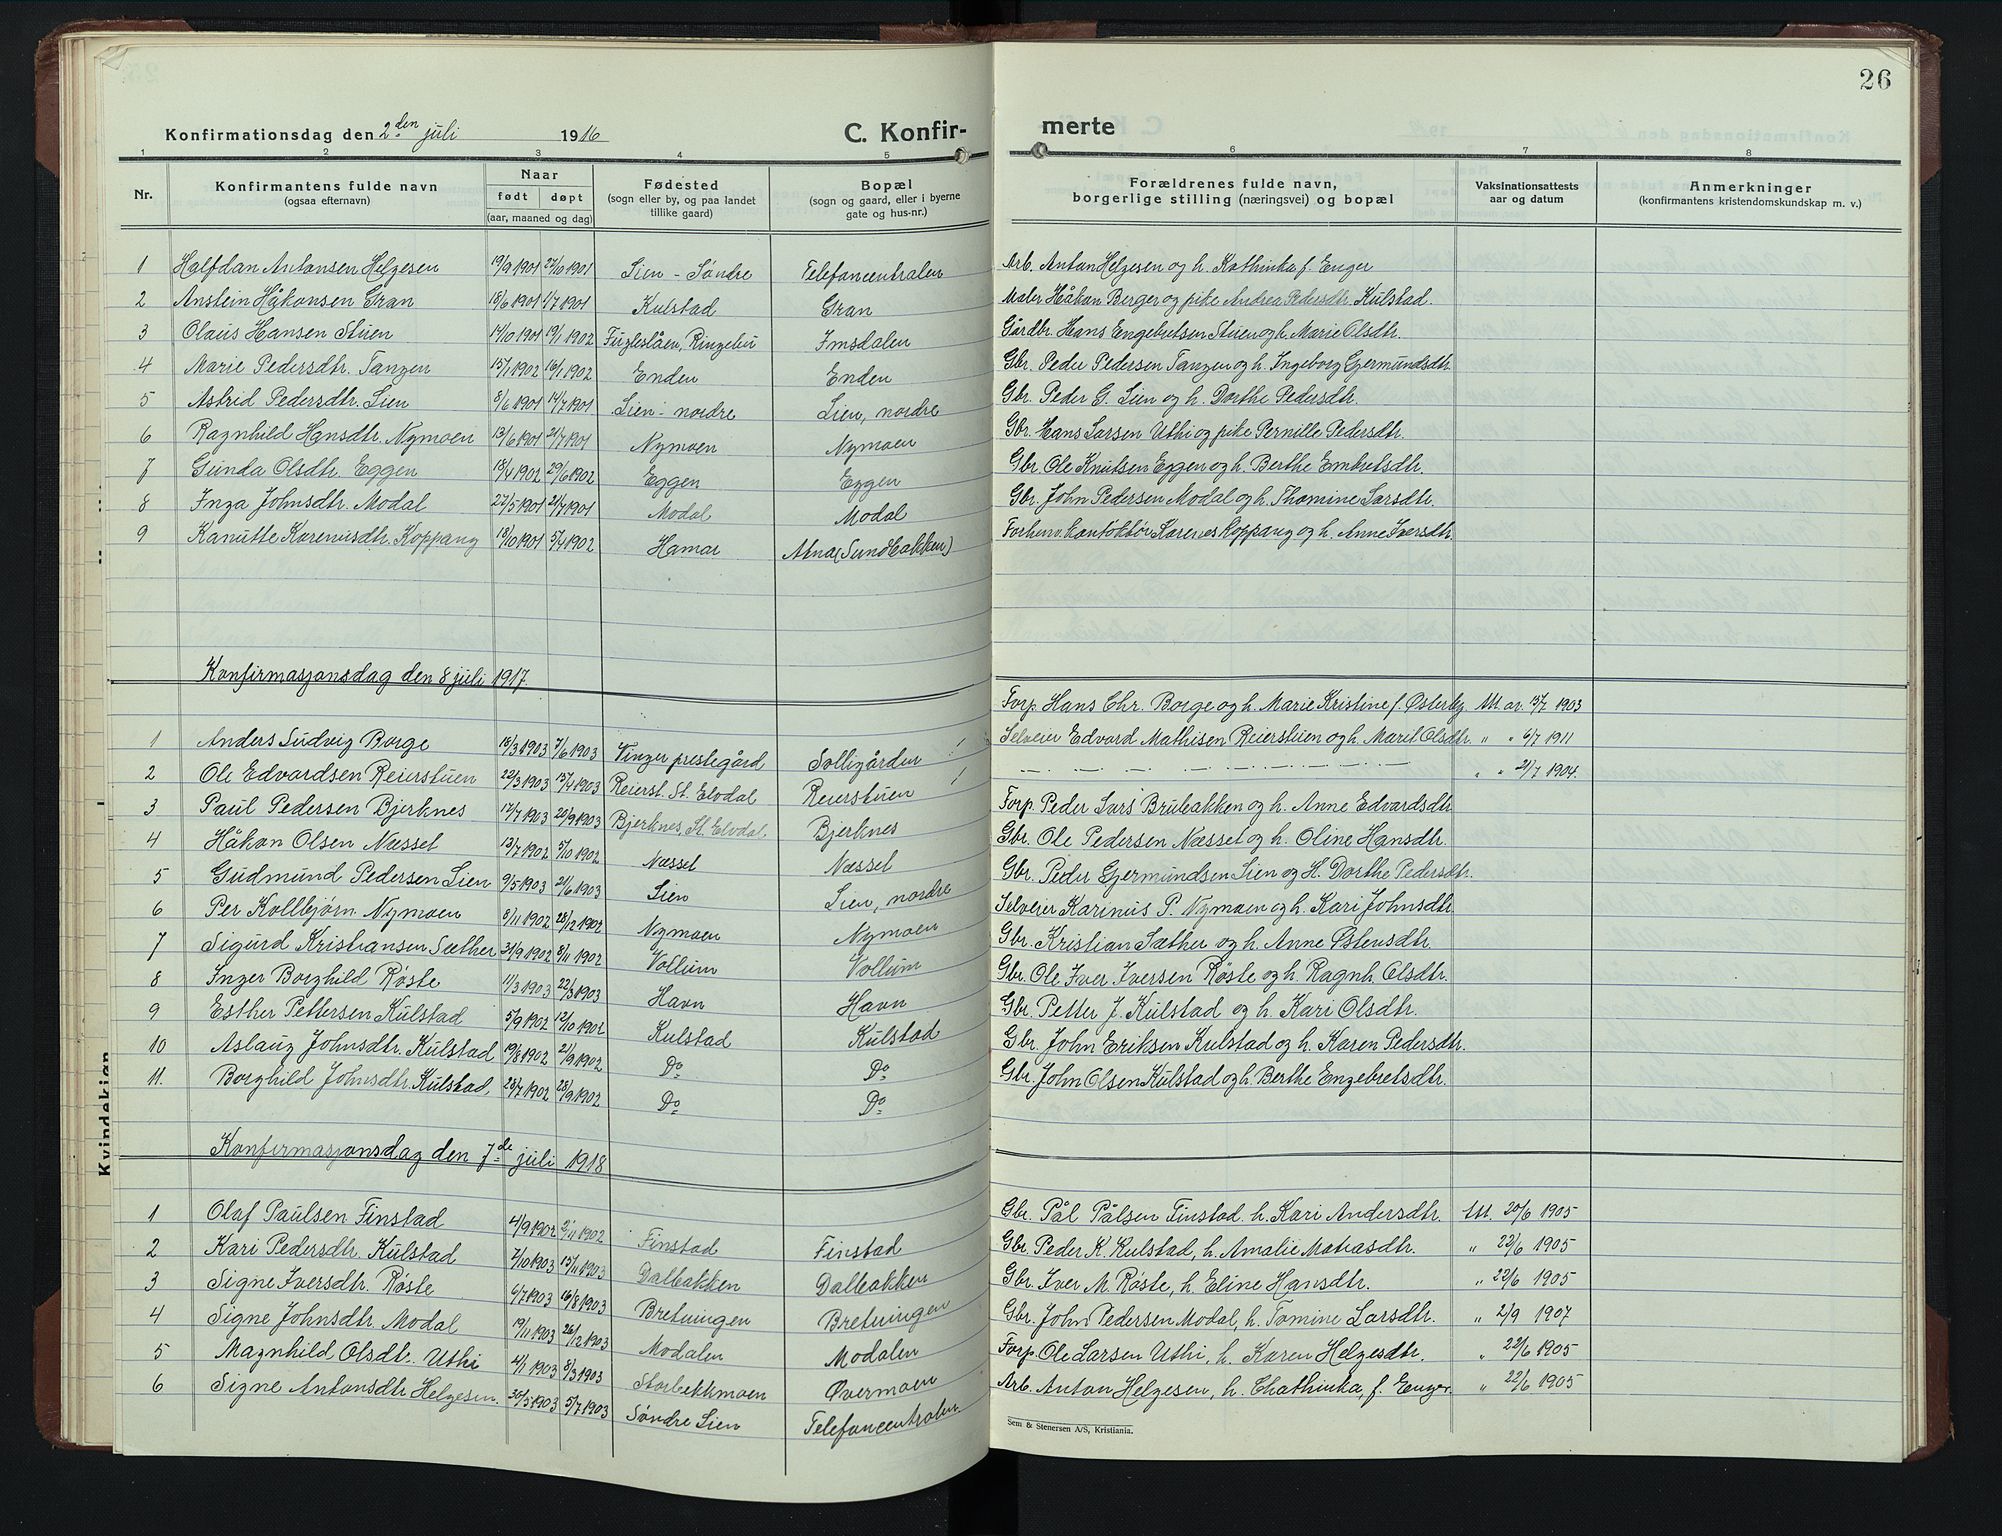 26
Konfirmationsdag den 2den juli 1916 C. Konfir- merte
1 2 3 4 5 6 7 8
Nr. Konfirmantens fulde navn (ogsaa efternavn) Naar født døpt (aar, maaned og dag) Fødested (sogn eller by, og paa landet tillike gaard) Bopæl (sogn og gaard, eller i byerne gate og hus-nr.) Forældrenes fulde navn, borgerlige stilling (næringsvei) og bopæl Vaksinationsattests aar og datum Anmerkninger (konfirmantens kristendomskundskap m. v.)
1 Halfdan Antonsen Helgesen 19/9 1901 27/10 1901 Lien - Søndre Telefoncentralen Arb. Anton Helgesen og h. Kathinka f. Enger
2 Anstein Håkonsen Gran 18/6 1901 1/7 1901 Kulstad Gran Maler Håkon Berger og pike Andrea Pedersdtr. Kulstad.
3 Olaus Hansen Stuen 14/10 1901 19/1 1902 Fugleslåen, Ringebu Imsdalen Gårdbr. Hans Engebretsen Stuen og h. Marie Olsdtr.
4 Marie Pedersdtr. Tangen 15/1 1902 16/1 1902 Enden Enden Gbr. Peder Pedersen Tangen og h. Ingeborg Gjermundsdtr.
5 Astrid Pedersdtr. Lien 8/6 1901 14/7 1901 Lien - nordre Lien, nordre Gbr. Peder G. Lien og h. Dorthe Pedersdtr.
6 Ragnhild Hansdtr. Nymoen 13/6 1901 21/7 1901 Nymoen Nymoen Gbr. Hans Larsen Uthi og pike Pernille Pedersdtr.
7 Gunda Olsdtr Eggen 18/4 1902 29/6 1902 Eggen Eggen Gbr. Ole Knutsen Eggen og h. Berthe Embretsdtr.
8 Inga Johnsdtr. Modal 27/5 1901 21/7 1901 Modal Modal Gbr. John Pedersen Modal og h. Thomine Larsdtr.
9 Kanutte Karenusdtr. Koppang 18/10 1901 5/4 1902 Hamar Atna (Sundbakken) Forhenv. kontoktør Karenes Koppang og h. Anne Iversdtr.
Konfirmasjonsdag den 8 juli 1917
1 Anders Ludvig Borge 16/3 1903 7/6 1903 Vinger prestegård Solligården ! Forp. Hans Chr. Borge og h. Marie Kristine f. Østerby Att. av 13/7 1903
2 Ole Edvardsen Reierstuen 22/3 1903 13/4 1903 Reierst. St. Elvdal Reierstuen ! Selveier Edvard Mathisen Reierstuen og h. Marit Olsdtr. " " 6/7 1911
3 Paul Pedersen Bjerknes 17/7 1903 20/9 1903 Bjerknes, St. Elvdal Bjerknes " " 21/7 1904.
Forp. Peder Lars Brubakken og h. Anne Edvardsdtr
4 Håkon Olsen Næsset 13/7 1902 5/10 1902 Næsset Næsset Gbr. Ole Pedersen Næsset og h. Oline Hansdtr.
5 Gudmund Pedersen Lien 9/5 1903 21/6 1903 Lien Lien, nordre Gbr. Peder Gjermundsen Lien og H. Dorthe Pedersdtr.
6 Per Kollbjørn Nymoen 8/11 1902 28/12 1902 Nymoen Nymoen Selveier Karinus P. Nymoen og h. Kari Johnsdtr.
7 Sigurd Kristiansen Sæther 31/9 1902 8/11 1902 Vollum Vollum Gbr. Kristian Sæther og h. Anne Østensdtr.
8 Inger Borghild Røste 11/3 1903 22/3 1903 Havn Havn Gbr. Ole Iver Iversen Røste og h. Ragnh. Olsdtr.
9 Esther Pettersen Kulstad 5/9 1902 12/10 1902 Kulstad Kulstad Gbr. Petter J. Kulstad og h. Kari Olsdtr.
10 Aslaug Johnsdtr. Kulstad 19/8 1902 21/9 1902 Do Do Gbr. John Eriksen Kulstad og h. Karen Pedersdtr.
11. Borghild Johnsdtr. Kulstad, 23/7 1902 28/9 1902 Do Do Gbr. John Olsen Kulstad og h. Berthe Engebretsdtr.
Kvindekjøn
Konfirmasjonsdag den 7de juli 1918
1 Olaf Paulsen Finstad 4/9 1902 2/11 1902 Finstad Finstad Gbr. Pål Pålsen Finstad. h. Kari Andersdtr. Att. 20/6 1905
2 Kari Pedersdtr. Kulstad 7/10 1903 15/11 1903 Dalbakken Dalbakken Gbr. Peder K. Kulstad, h. Amalie Matiasdtr. " 22/6 1905
3 Signe Iversdtr. Røste 6/7 1903 16/8 1903 Bretningen Bretningen Gbr. Iver M. Røste, h. Eline Hansdtr. " 22/6 1905
4 Signe Johnsdtr. Modal 19/11 1903 26/12 1903 Modalen Modalen Gbr. John Pedersen Modal, h. Tomine Larsdtr. " 2/9 1907
5 Magnhild Olsdtr. Uthi 4/1 1903 8/3 1903 Storbekkmoen Øvermoen Forp. Ole Larsen Uthi, h. Karen Helgesdtr. " 22/6 1905
6 Signe Antonsdtr Helgesen. 30/5 1903 5/7 1903 Søndre Lien Telefoncentralen Arb. Anton Helgesen, h. Chathinka, f. Enger. " 22/6 1905
Sem & Stenersen A/S, Kristiania.